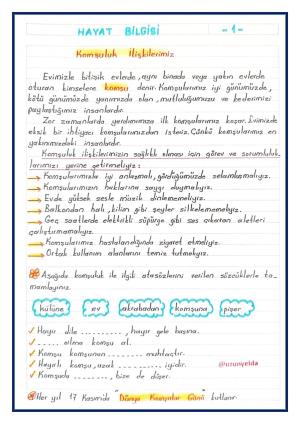 HAYAT BİLGİSİ -1-
Komşuluk İlişkilerimiz
Evimizle bitişik evlerde, aynı binada veya yakın evlerde
oturan kimselere komşu denir. Komşularımız iyi günümüzde,
kötü günümüzde yanımızda olan, mutluluğumuzu ve kederimizi
paylaştığımız insanlardır.
Zor zamanlarda yardımımıza ilk komşularımız koşar. Evimizde
eksik bir ihtiyacı komşularımızdan isteriz. Çünkü komşularımız en
yakınımızdaki insanlardır.
Komşuluk ilişkilerimizin sağlıklı olması için görev ve sorumluluk-
larımızı yerine getirmeliyiz:
Komşularımızla iyi anlaşmalı, gördüğümüzde selamlamalıyız.
Komşularımızın haklarına saygı duymalıyız.
Evde yüksek sesle müzik dinlememeliyiz.
Balkondan halı, kilim gibi şeyler silkelememeliyiz.
Geç saatlerde elektrikli süpürge gibi ses çıkartan aletleri
çalıştırmamalıyız.
Komşularımız hastalandığında ziyaret etmeliyiz.
Ortak kullanım alanlarını temiz tutmalıyız.
Aşağıda komşuluk ile ilgili atasözlerini verilen sözcüklerle ta-
mamlayınız.
külüne ev akrabadan komşuna pişer
Hayır dile ........., hayır gele başına.
..... alma komşu al.
Komşu komşunun ........ muhtaçtır.
Hayırlı komşu, uzak ......... iyidir.
@urunyelda
Komşuda ........, bize de düşer.
Her yıl 17 Kasımda "Dünya Komşular Günü" kutlanır.